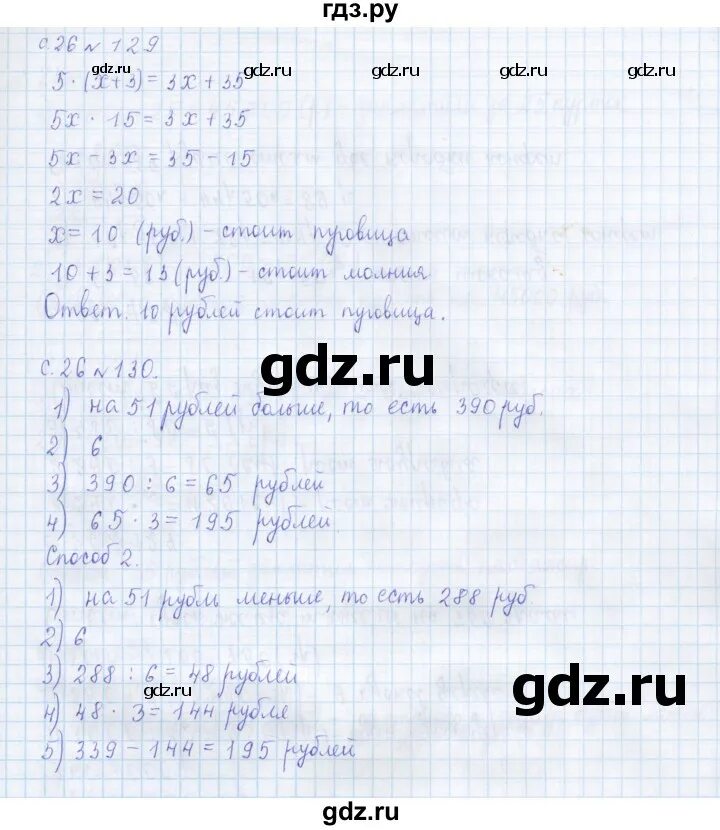 гдз.ру
с.26 № 129
gdz.ru
gdz.ru
gdz.ru
5 · (х+3) = 3х + 35
5х · 15 = 3х + 35
5х – 3х = 35 – 15
2х = 20
х = 10 (руб.) – стоит пуговица
10 + 3 = 13 (руб.) – стоит молния
Ответ. 10 рублей стоит пуговица.
с. 26 № 130.
gdz.ru
1) на 51 рублей больше, то есть 390 руб.
2) 6
3) 390 : 6 = 65 рублей
4) 65 · 3 = 195 рублей
Способ 2.
1) на 51 рубль меньше, то есть 288 руб
2) 6
3) 288 : 6 = 48 рублей
gdz.ru
gdz.ru
4) 48 · 3 = 144 рубля
5) 339 – 144 = 195 рублей
gdz.ru